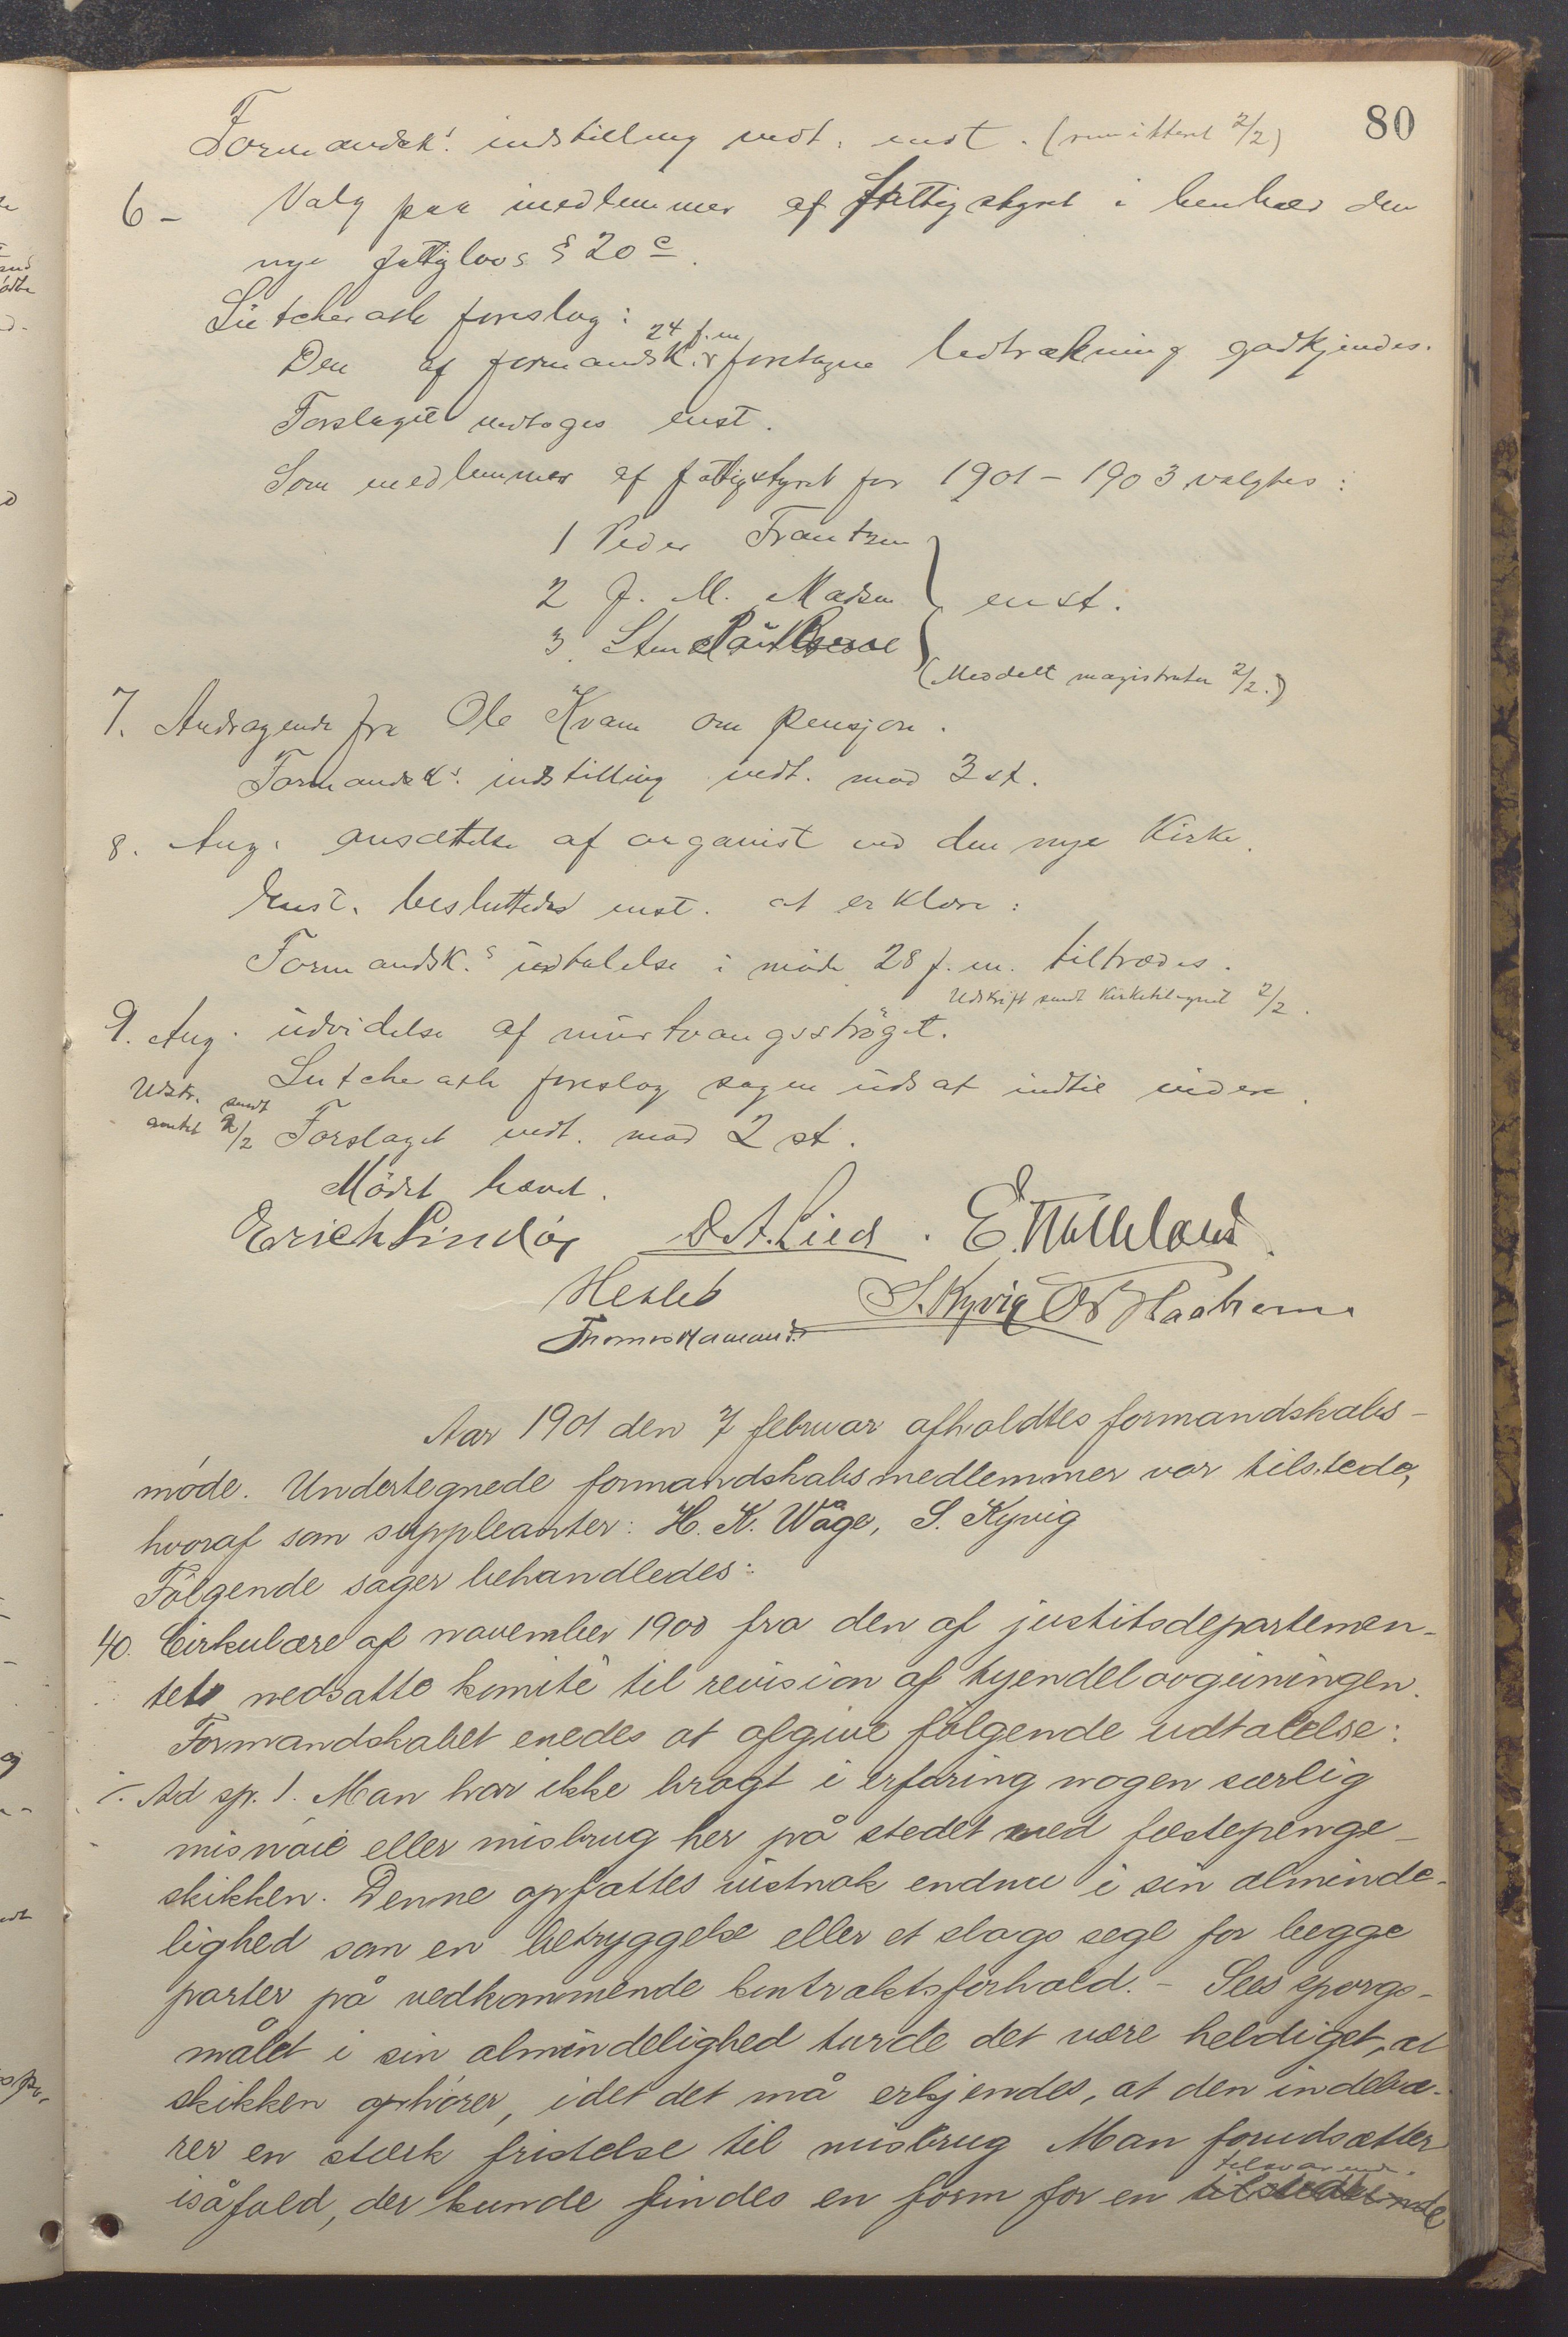 80
Formandsk.s indstilling vedt. enst. (remitteret 2/2)
6- Valg paa medlemmer af fattigstyret i henhold den
nye fattiglovs § 20 c.
Lütcherath foreslog:
Den af formandsk. 24 f.m. foretagne lodtrækning godkjendes.
Forslaget vedtoges enst.
Som medlemmer af fattigstyret for 1901-1903 valgtes:
1 Peder Frantzen
2 J. M. Madsen enst.
3. Sten
(Meddelt magistraten 2/2.)
7. Andragende fra Ole Kvam om pensjon.
Formandsk.s indstilling vedt. mod 3 st.
8. Ang. ansættelse af organist ved den nye Kirke.
Enst. besluttedes enst. at erklære:
Formandsk.s udtalelse i møde 28 f.m. tiltrædes.
Udskrift sendt Kirketilsynet 2/2.
9. Ang. udvidelse af murtvangsstrøget.
Lutcherath foreslog sagen udsat indtil videre.
Udskr. sendt
amtet 2/2 Forslaget vedt. mod 2 st.
Mödet hævet.
Erich Lindøe O A. Lied. E. Hatleland.
Hesleb S. Kyvig
Thomas Hamand
Aar 1901 den 7 februar afholdtes formandskabs-
møde. Undertegnede formandskabsmedlemmer var tilstede,
hvoraf som suppleanter: H. K. Wåge, S. Kyvig
Følgende sager behandledes:
40. Cirkulære af november 1900 fra den af justitsdepartemen-
tet nedsatte komité til revision af tyendelovgivningen.
Formandskabet enedes at afgive følgende udtalelse:
Ad sp. 1. Man har ikke bragt i erfaring nogen særlig
misnøie eller misbrug her på stedet med fæstepenge-
skikken. Denne opfattes vistnok endnu i sin alminde-
lighed som en betryggelse eller et slags segl for begge
parter på vedkommende kontraktsforhold. - Sees spørgs-
målet i sin almindelighed turde det være heldiget, at
skikken ophører, idet det må erkjendes, at den indebæ-
rer en stærk fristelse til misbrug Man forudsætter
isåfald, der kunde findes en form for en tilsvarende